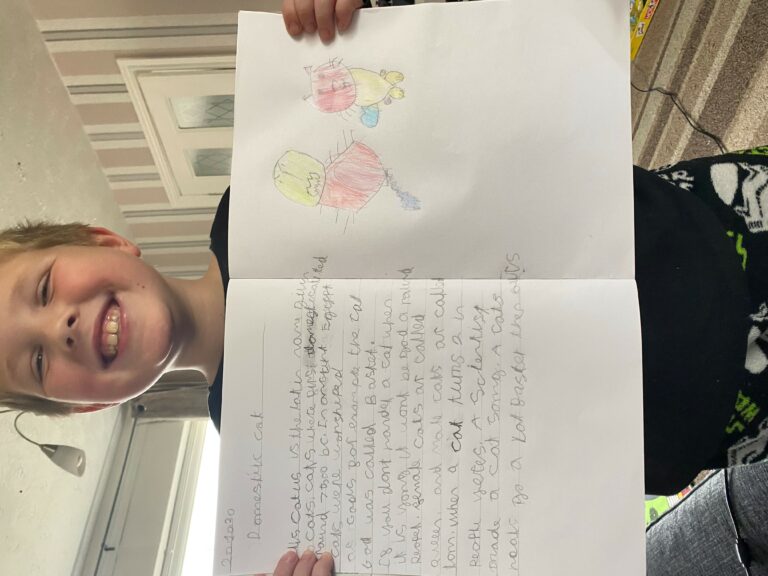 Domestic cat
lis Catus is the latin name given
cats. cats where first domesticated
round 7500 bc. In ancint Egypt
cats were worshiped
as Gods for example the cat
God was called Basket.
If you dont a cat when
it is yong it wont be good around
female cats ar called
queen, and male cats ar called
tom. when a cat turns 2 in
People yeres. A Scientist
made a cat song. A cats
go a lot faster then ours